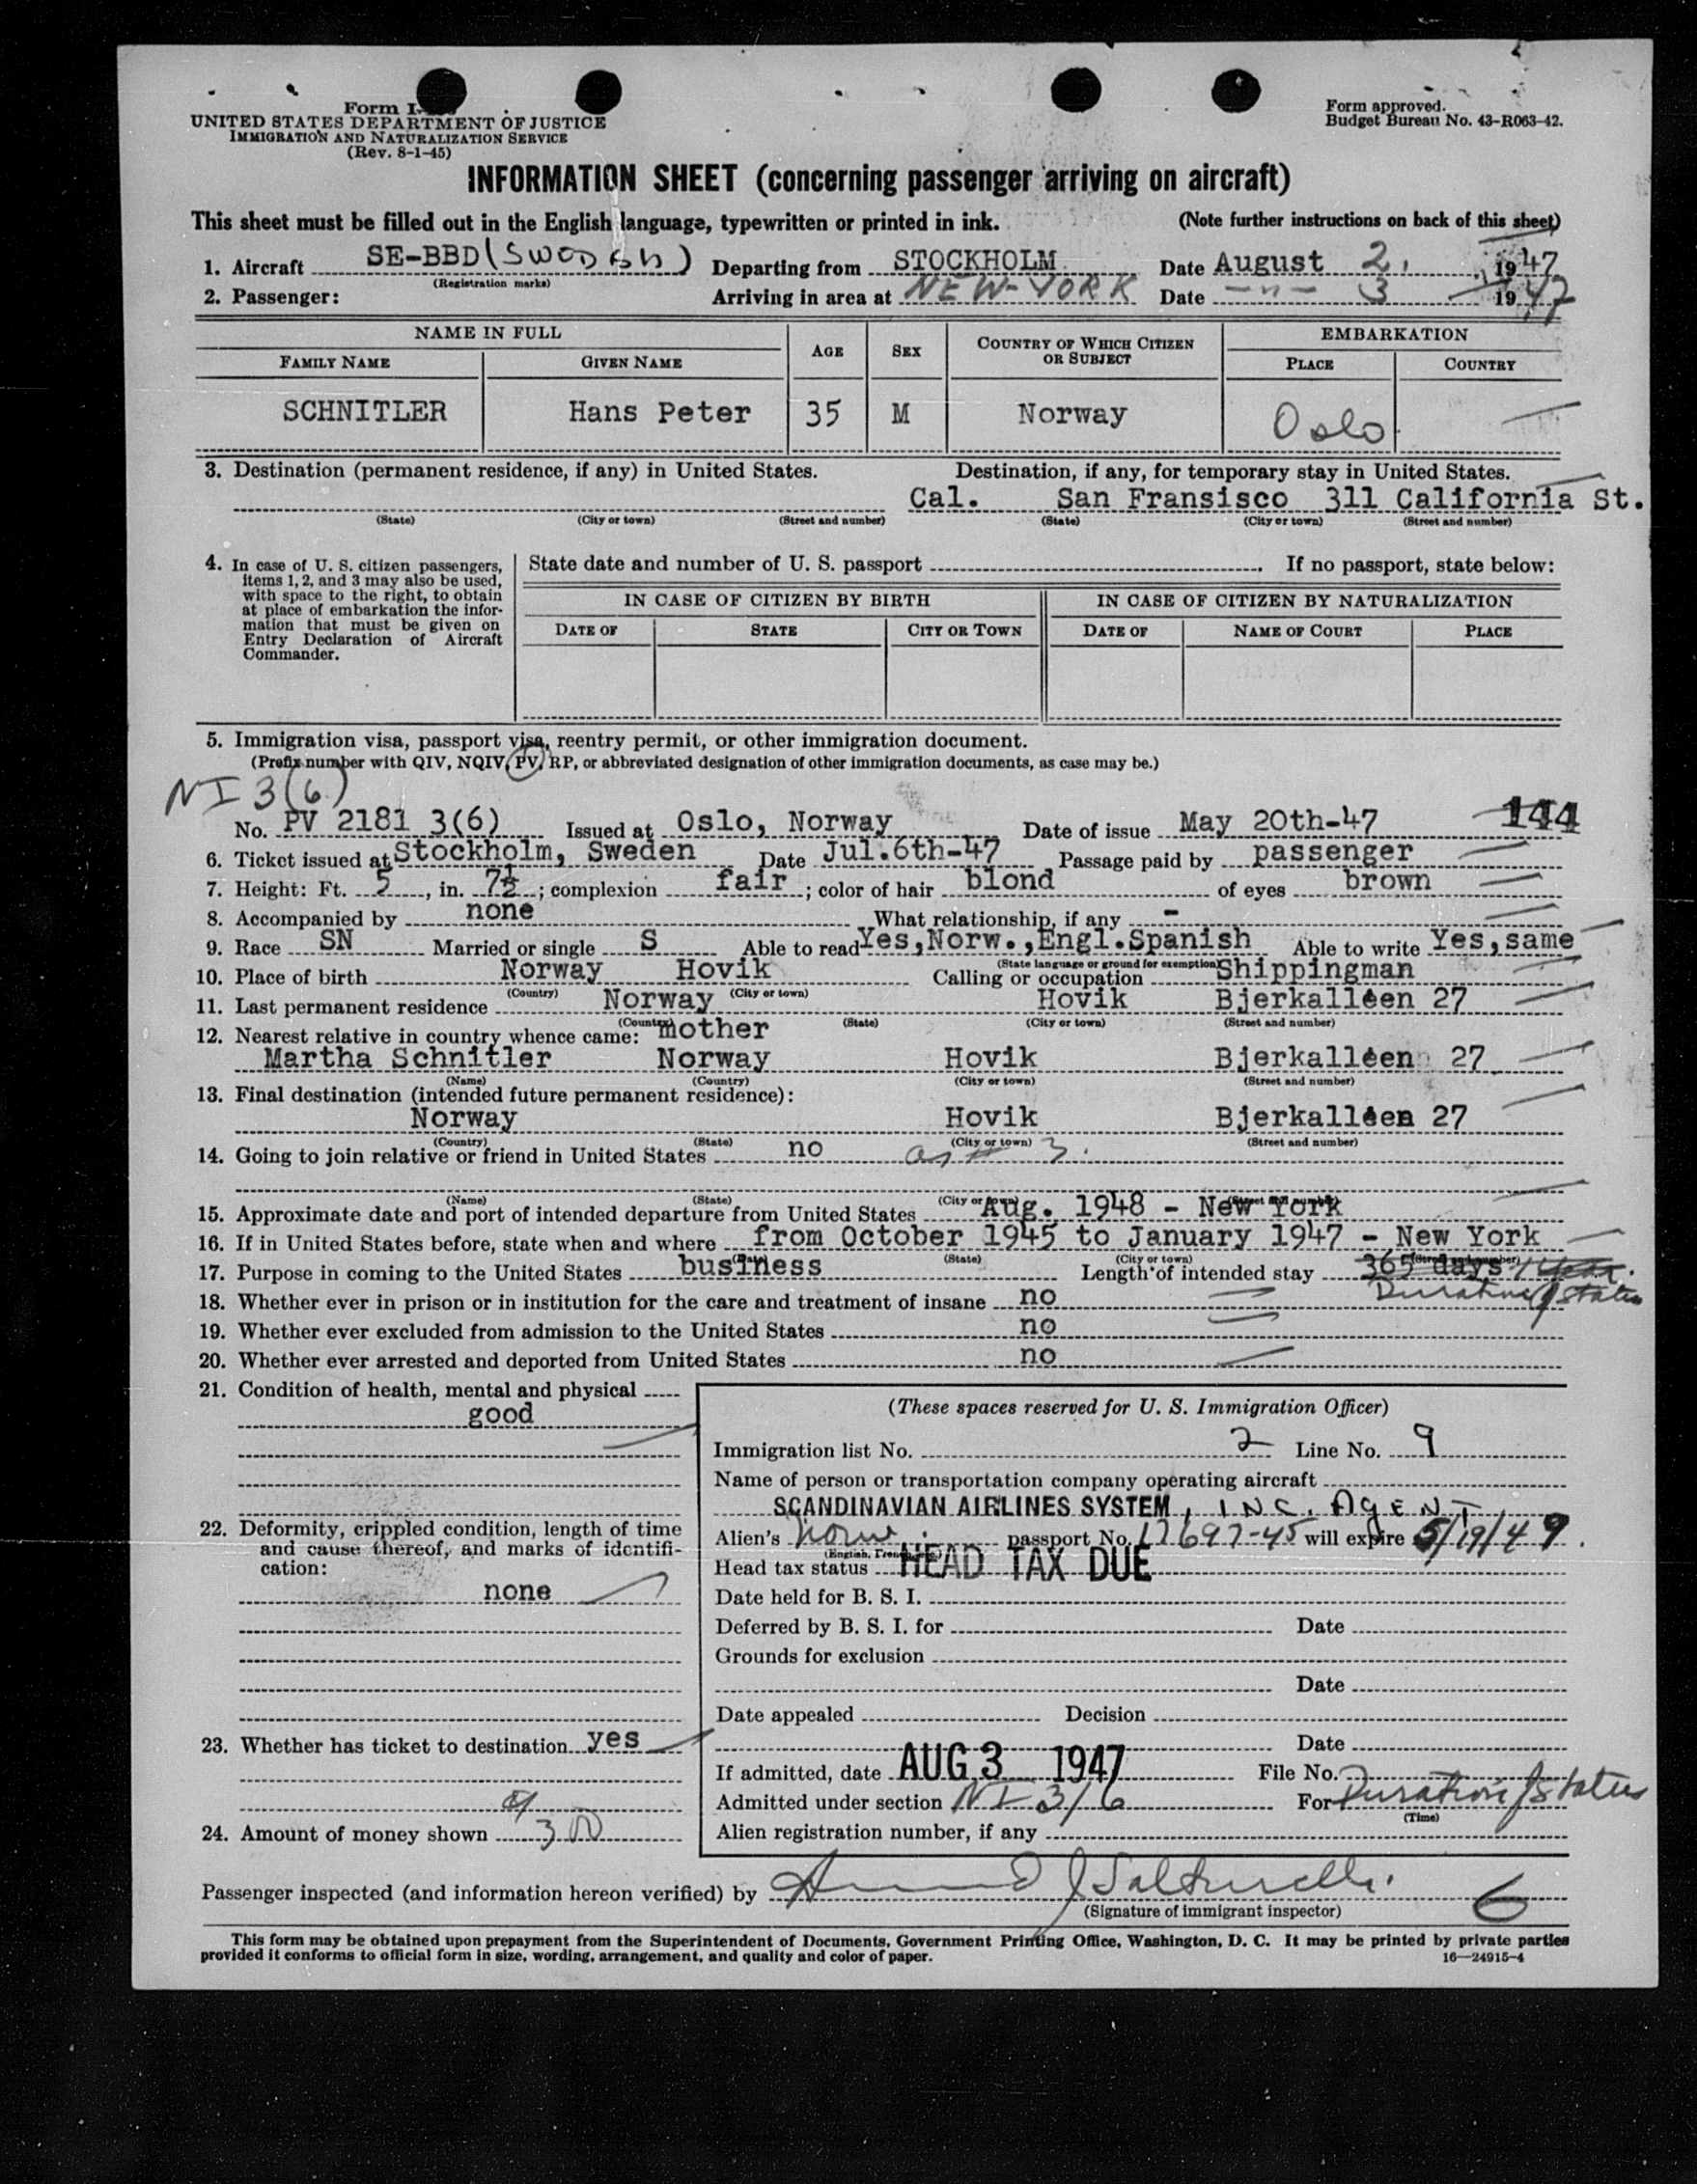 Form I-
UNITED STATES DEPARTMENT OF JUSTICE
IMMIGRATION AND NATURALIZATION SERVICE
(Rev. 8-1-45)
Form approved.
Budget Bureau No. 43-R063-42.
INFORMATION SHEET (concerning passenger arriving on aircraft)
This sheet must be filled out in the English language, typewritten or printed in ink. (Note further instructions on back of this sheet)
1. Aircraft SE-BBD (SWODGH) Departing from STOCKHOLM Date August 2, 1947
(Registration marks)
2. Passenger: Arriving in area at NEW-YORK Date —"— 3 1947
NAME IN FULL AGE SEX COUNTRY OF WHICH CITIZEN OR SUBJECT EMBARKATION
FAMILY NAME GIVEN NAME PLACE COUNTRY
SCHNITLER Hans Peter 35 M Norway Oslo
3. Destination (permanent residence, if any) in United States. Destination, if any, for temporary stay in United States.
Cal. San Fransisco 311 California St.
(State) (City or town) (Street and number) (State) (City or town) (Street and number)
4. In case of U. S. citizen passengers, items 1, 2, and 3 may also be used, with space to the right, to obtain at place of embarkation the information that must be given on Entry Declaration of Aircraft Commander.
State date and number of U. S. passport If no passport, state below:
IN CASE OF CITIZEN BY BIRTH IN CASE OF CITIZEN BY NATURALIZATION
DATE OF STATE CITY OR TOWN DATE OF NAME OF COURT PLACE
5. Immigration visa, passport visa, reentry permit, or other immigration document.
(Prefix number with QIV, NQIV, PV, RP, or abbreviated designation of other immigration documents, as case may be.)
NI 3(6)
No. PV 2181 3(6) Issued at Oslo, Norway Date of issue May 20th-47 144
6. Ticket issued at Stockholm, Sweden Date Jul.6th-47 Passage paid by passenger
7. Height: Ft. 5, in. 7½; complexion fair; color of hair blond of eyes brown
8. Accompanied by none What relationship, if any -
9. Race SN Married or single S Able to read Yes,Norw.,Engl.Spanish Able to write Yes,same
(State language or ground for exemption)
10. Place of birth Norway Hovik Calling or occupation Shippingman
(Country) (City or town)
11. Last permanent residence Norway Hovik Bjerkalléen 27
(Country) (State) (City or town) (Street and number)
12. Nearest relative in country whence came: mother
Martha Schnitler Norway Hovik Bjerkalléen 27
(Name) (Country) (City or town) (Street and number)
13. Final destination (intended future permanent residence):
Norway Hovik Bjerkalléen 27
(Country) (State) (City or town) (Street and number)
14. Going to join relative or friend in United States no as # 3.
(Name) (State) (City or town) (Street and number)
15. Approximate date and port of intended departure from United States Aug. 1948 - New York
16. If in United States before, state when and where from October 1945 to January 1947 - New York
(Date) (State) (City or town) (Street and number)
17. Purpose in coming to the United States business Length of intended stay 365 days 1 year.
Duration of status
18. Whether ever in prison or in institution for the care and treatment of insane no
19. Whether ever excluded from admission to the United States no
20. Whether ever arrested and deported from United States no
21. Condition of health, mental and physical
good
22. Deformity, crippled condition, length of time and cause thereof, and marks of identification:
none
23. Whether has ticket to destination yes
24. Amount of money shown 300
(These spaces reserved for U. S. Immigration Officer)
Immigration list No. 2 Line No. 9
Name of person or transportation company operating aircraft
SCANDINAVIAN AIRLINES SYSTEM, INC. AGENT
Alien's Norw. passport No. 17697-45 will expire 5/19/49.
Head tax status HEAD TAX DUE
Date held for B. S. I.
Deferred by B. S. I. for Date
Grounds for exclusion
Date
Date appealed Decision
Date
If admitted, date AUG 3 1947 File No.
Admitted under section NI 3/6 For Duration of status
(Time)
Alien registration number, if any
Passenger inspected (and information hereon verified) by
(Signature of immigrant inspector)
6
This form may be obtained upon prepayment from the Superintendent of Documents, Government Printing Office, Washington, D. C. It may be printed by private parties
provided it conforms to official form in size, wording, arrangement, and quality and color of paper. 16—24915-4